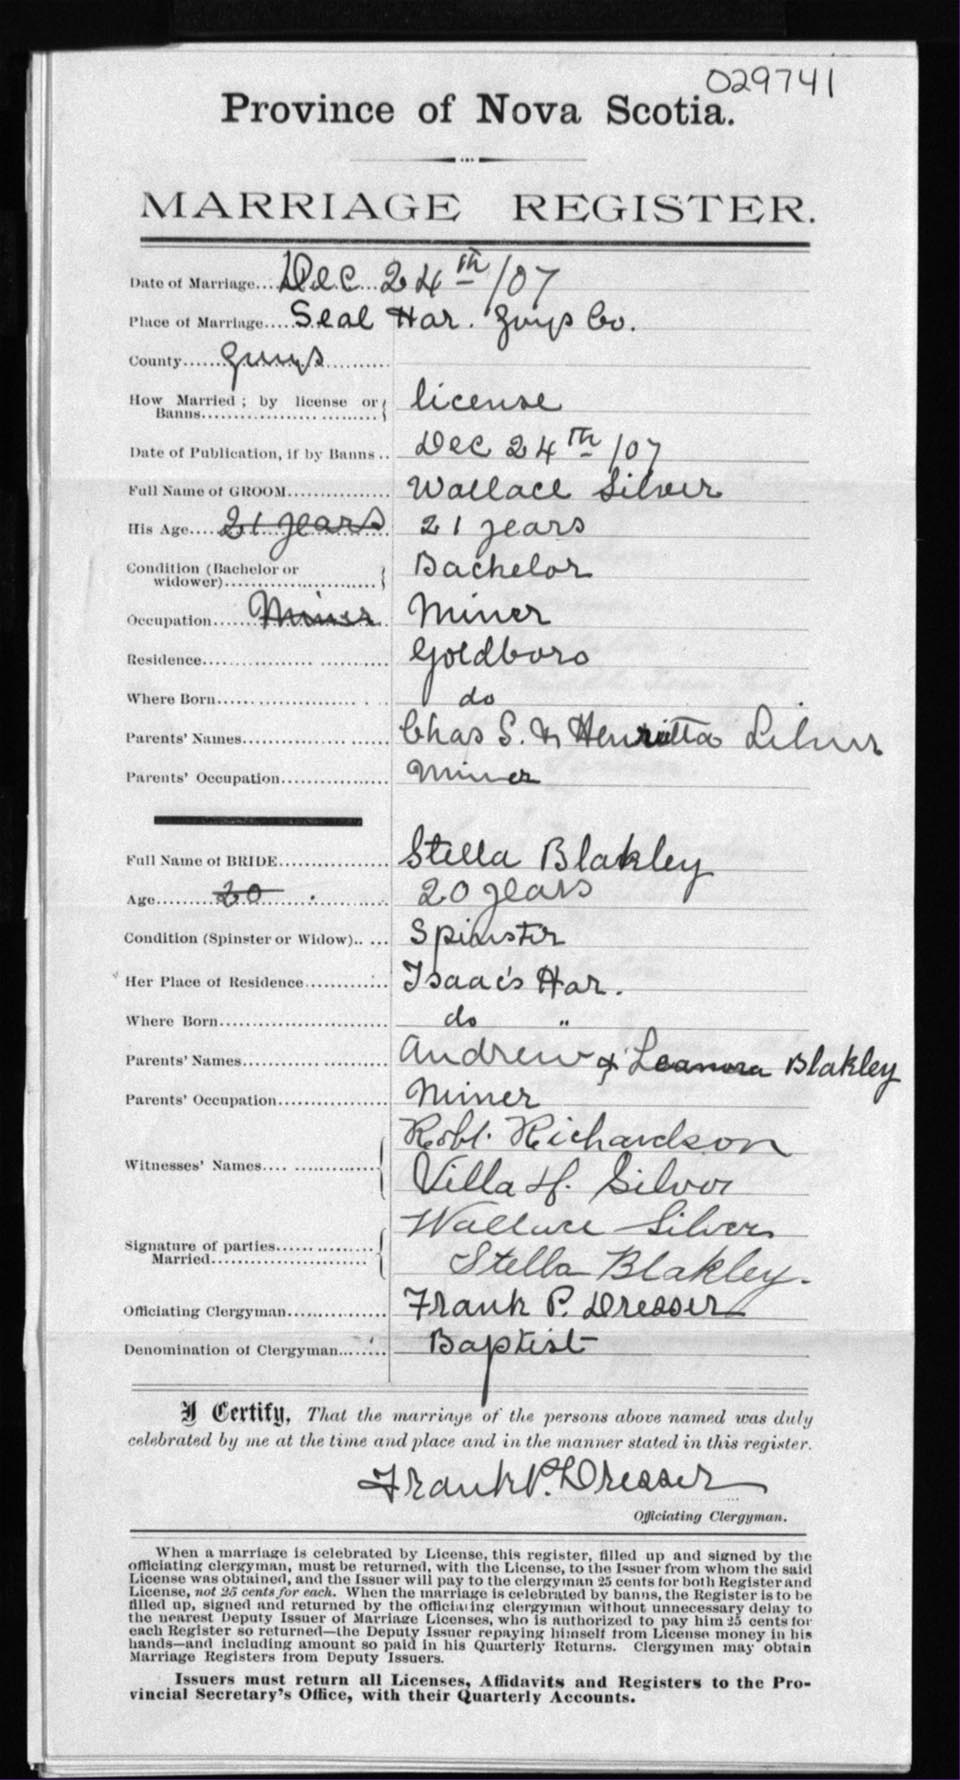 029741
Province of Nova Scotia.
MARRIAGE REGISTER.
Date of Marriage.... Dec 24th/07
Place of Marriage..... Seal Har. Guys Co.
County...... Guys
How Married; by license or Banns... license
Date of Publication, if by Banns.. Dec 24th/07
Full Name of GROOM... Wallace Silver
His Age.... 21 years 21 years
Condition (Bachelor or widower)... Bachelor
Occupation...... Miner Miner
Residence... Goldboro
Where Born... do
Parents' Names... Chas S. & Henrietta Silver
Parents' Occupation... Miner
Full Name of BRIDE... Stella Blakley
Age........ 20 20 years
Condition (Spinster or Widow)..... Spinster
Her Place of Residence... Isaac's Har.
Where Born... do "
Parents' Names... Andrew & Leanora Blakley
Parents' Occupation... Miner
Witnesses' Names.... Robt. Richardson
Villa H. Silver
Signature of parties Married... Wallace Silver
Stella Blakley.
Officiating Clergyman... Frank P. Dresser
Denomination of Clergyman... Baptist
I Certify, That the marriage of the persons above named was duly
celebrated by me at the time and place and in the manner stated in this register.
Frank P. Dresser
Officiating Clergyman.
When a marriage is celebrated by License, this register, filled up and signed by the
officiating clergyman, must be returned, with the License, to the Issuer from whom the said
License was obtained, and the Issuer will pay to the clergyman 25 cents for both Register and
License, not 25 cents for each. When the marriage is celebrated by banns, the Register is to be
filled up, signed and returned by the officiating clergyman without unnecessary delay to
the nearest Deputy Issuer of Marriage Licenses, who is authorized to pay him 25 cents for
each Register so returned—the Deputy Issuer repaying himself from License money in his
hands—and including amount so paid in his Quarterly Returns. Clergymen may obtain
Marriage Registers from Deputy Issuers.
Issuers must return all Licenses, Affidavits and Registers to the Pro-
vincial Secretary's Office, with their Quarterly Accounts.